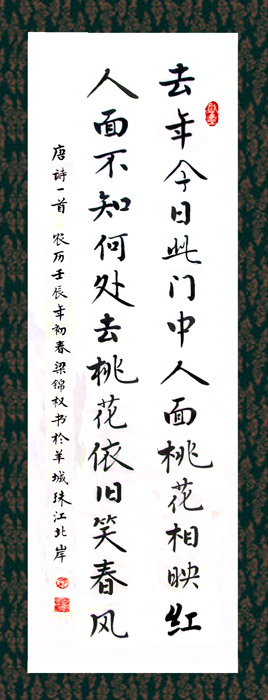 去年今日此门中人面桃花相映红
人面不知何处去桃花依旧笑春风
唐诗一首 农历壬辰年初春梁锦权书于羊城珠江北岸